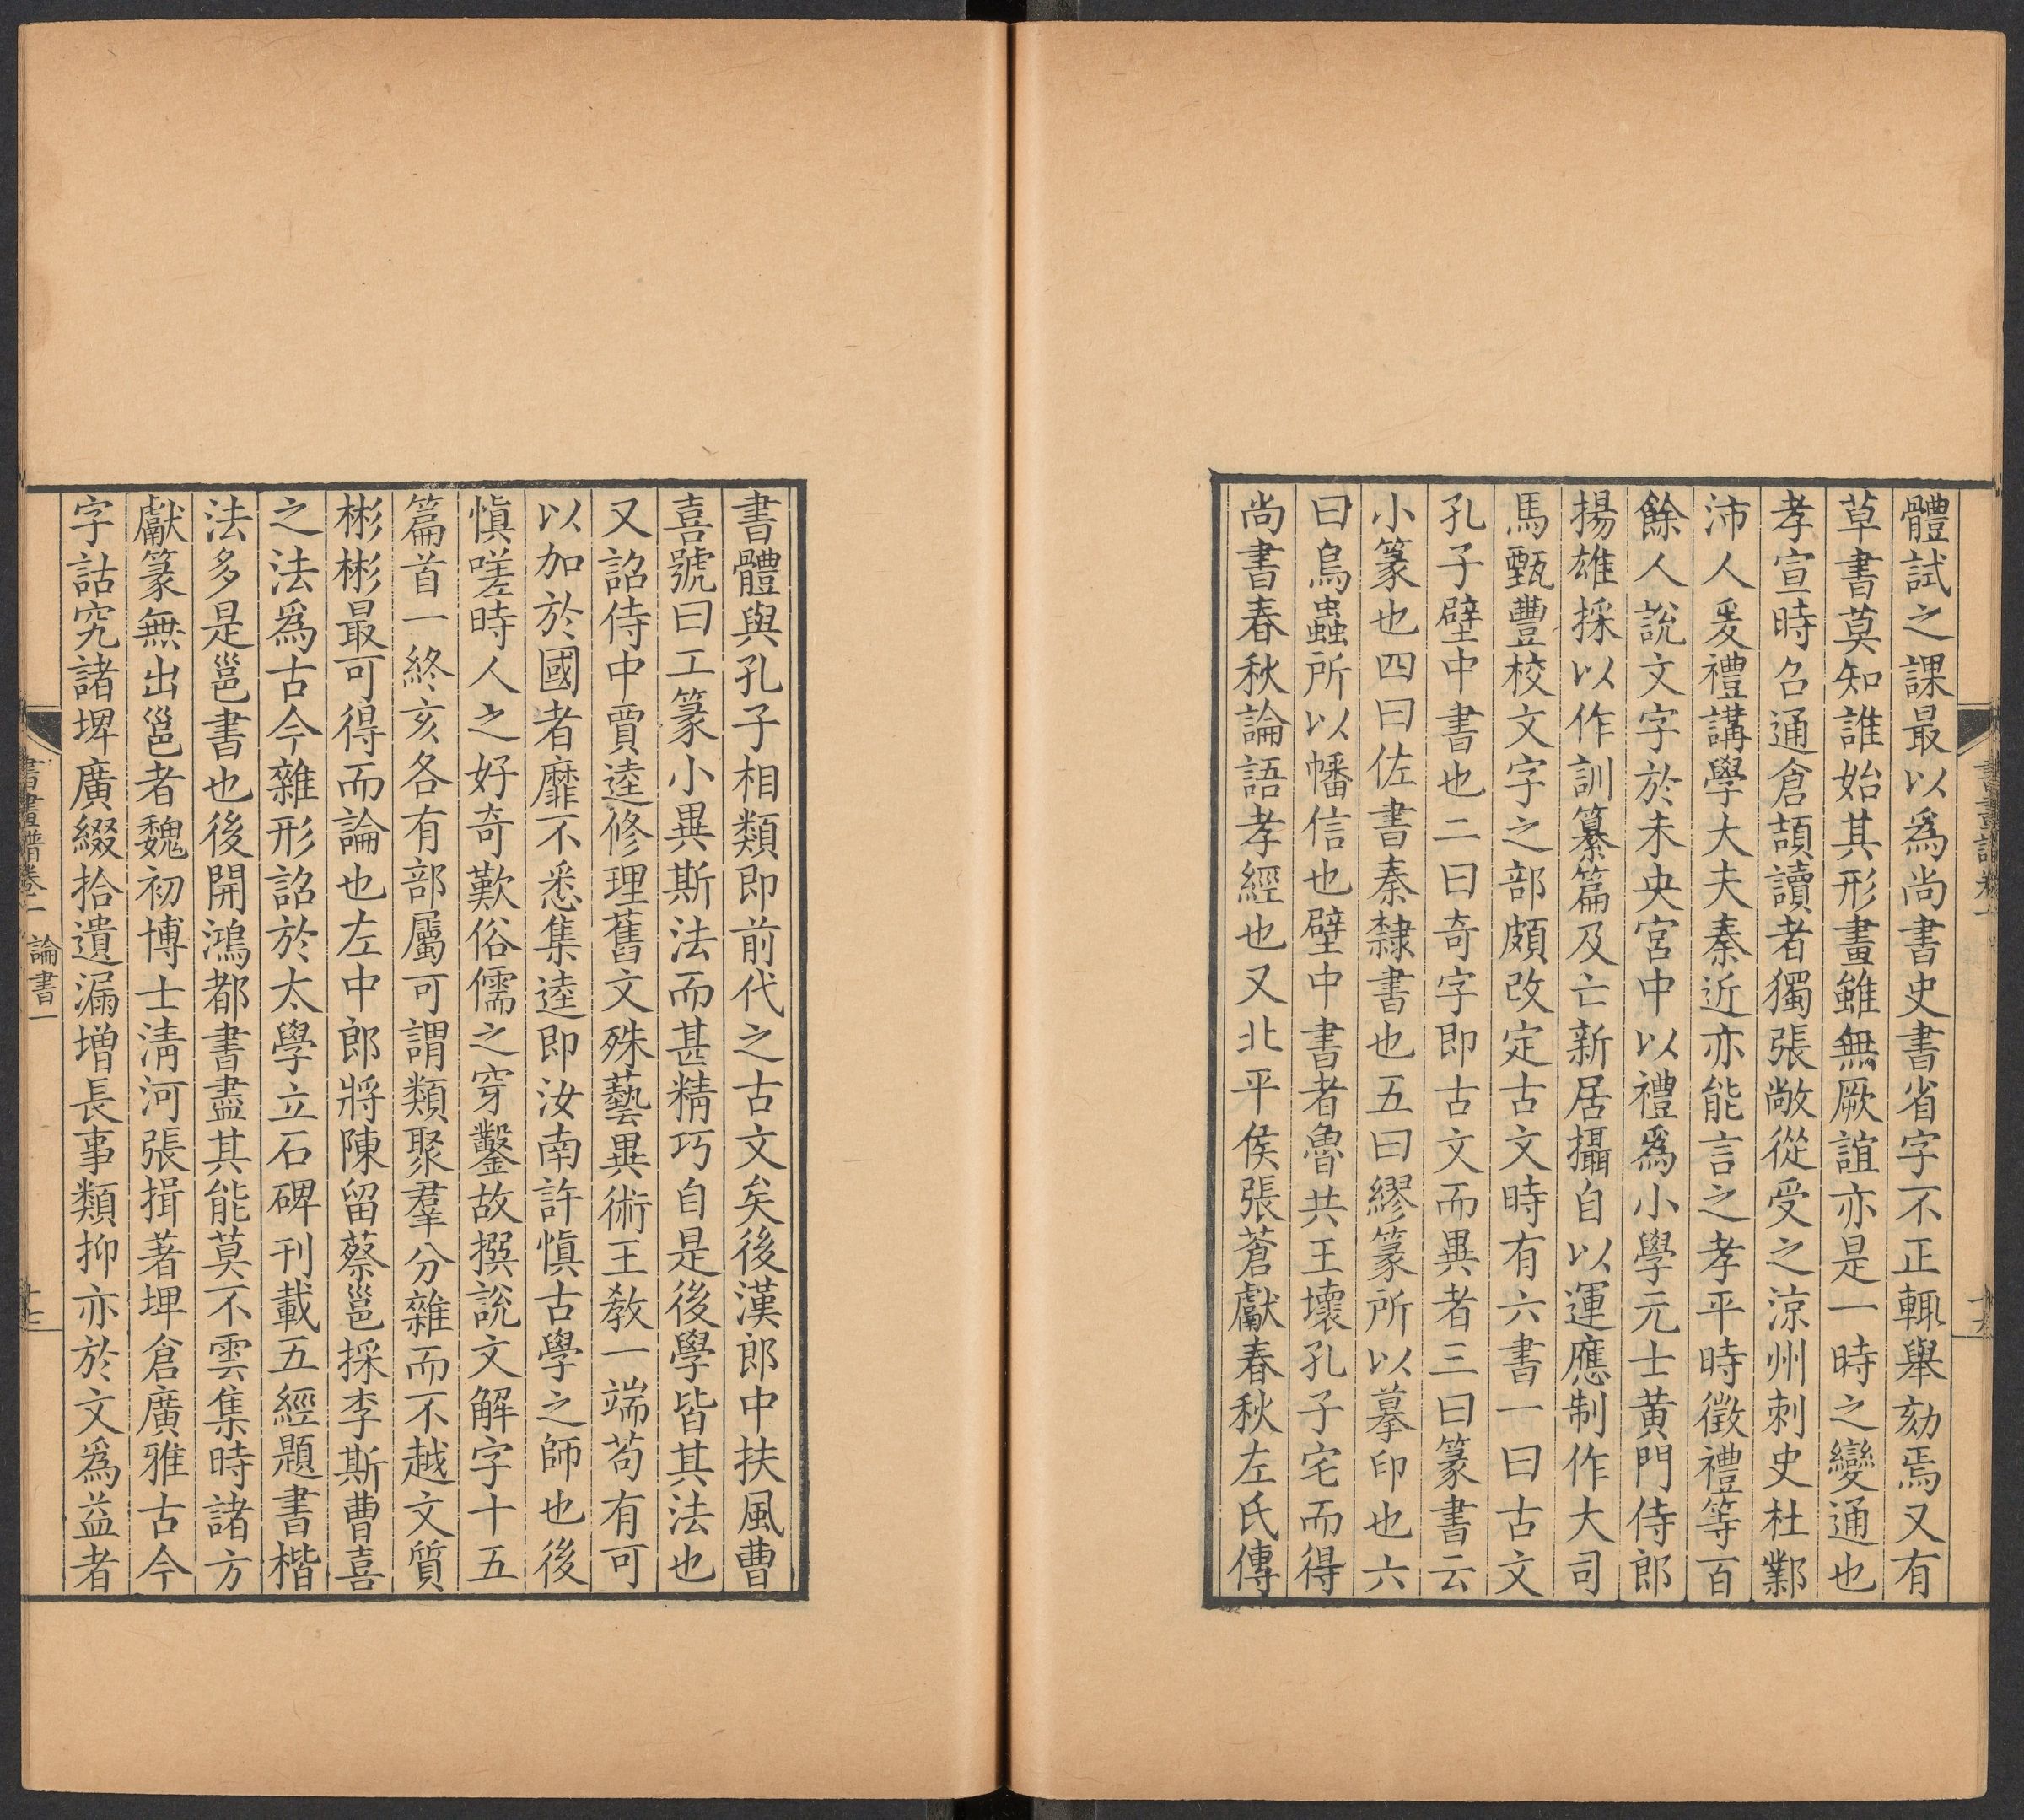 體試之課最以爲尚書史書省字不正輒舉劾焉又有
草書莫知誰始其形畫雖無厥誼亦是一時之變通也
孝宣時召通倉頡讀者獨張敞從受之涼州刺史杜鄴
沛人爰禮講學大夫秦近亦能言之孝平時徵禮等百
餘人說文字於未央宮中以禮爲小學元士黄門侍郎
揚雄採以作訓纂篇及亡新居攝自以運應制作大司
馬甄豐校文字之部頗改定古文時有六書一曰古文
孔子壁中書也二曰奇字即古文而異者三曰篆書云
小篆也四曰佐書秦隸書也五曰繆篆所以摹印也六
曰鳥蟲所以幡信也壁中書者魯共王壞孔子宅而得
尚書春秋論語孝經也又北平侯張蒼獻春秋左氏傳
書體與孔子相類即前代之古文矣後漢郎中扶風曹
喜號曰工篆小異斯法而甚精巧自是後學皆其法也
又詔侍中賈逵修理舊文殊藝異術王教一端苟有可
以加於國者靡不悉集逵即汝南許慎古學之師也後
慎嗟時人之好奇歎俗儒之穿鑿故撰說文解字十五
篇首一終亥各有部屬可謂類聚羣分雜而不越文質
彬彬最可得而論也左中郎將陳留蔡邕採李斯曹喜
之法爲古今雜形詔於太學立石碑刊載五經題書楷
法多是邕書也後開鴻都書畫其能莫不雲集時諸方
獻篆無出邕者魏初博士淸河張揖著埤倉廣雅古今
字詁究諸埤廣綴拾遺漏增長事類抑亦於文爲益者
書畫譜卷二
論書一
十七